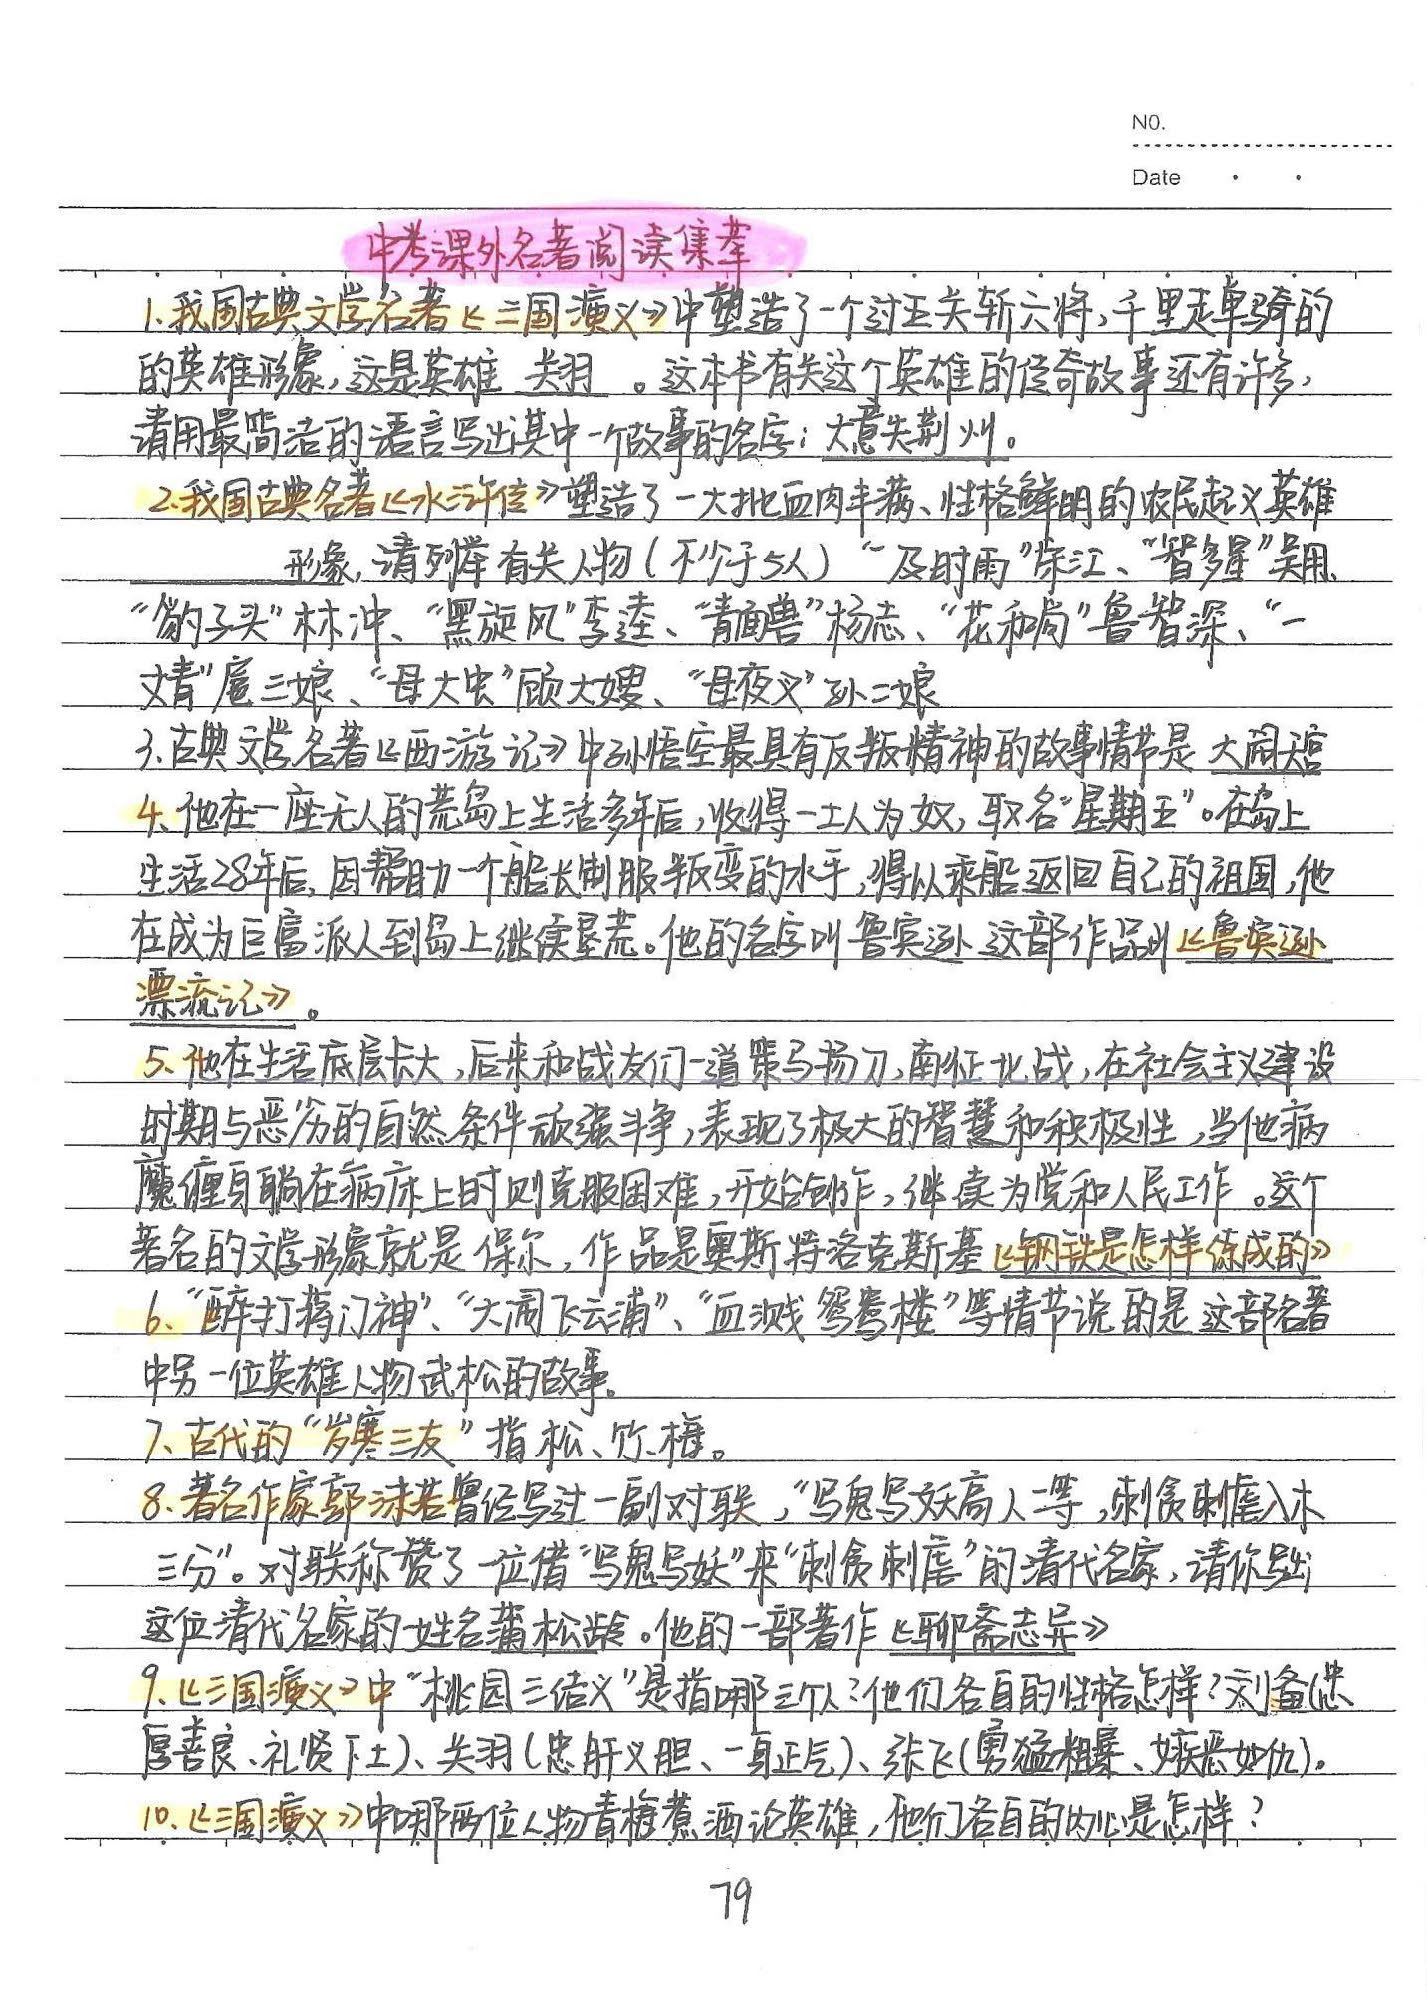 NO.
Date
中考课外名著阅读集萃
1、我国古典文学名著《三国演义》中塑造了一个过五关斩六将,千里走单骑的
的英雄形象,这是英雄 关羽 。这本书有关这个英雄的传奇故事还有许多,
请用最简洁的语言写出其中一个故事的名字：大意失荆州。
2、我国古典名著《水浒传》塑造了一大批血肉丰满、性格鲜明的农民起义英雄
形象,请列举有关人物(不少于5人) “及时雨”宋江、“智多星”吴用、
“豹子头”林冲、“黑旋风”李逵、“青面兽”杨志、“花和尚”鲁智深、“一
丈青”扈三娘、“母大虫”顾大嫂、“母夜叉”孙二娘
3、古典文学名著《西游记》中孙悟空最具有反叛精神的故事情节是 大闹天宫
4、他在一座无人的荒岛上生活多年后,收得一土人为奴,取名“星期五”。在岛上
生活28年后,因帮助一个船长制服叛变的水手,得以乘船返回自己的祖国,他
在成为巨富派人到岛上继续垦荒。他的名字叫鲁宾逊 这部作品叫《鲁宾逊
漂流记》。
5、他在生活底层长大,后来和战友们一道策马扬刀,南征北战,在社会主义建设
时期与恶劣的自然条件顽强斗争,表现了极大的智慧和积极性,当他病
魔缠身躺在病床上时则克服困难,开始创作,继续为党和人民工作。这个
著名的文学形象就是 保尔,作品是奥斯特洛克斯基《钢铁是怎样练成的》
6、“醉打蒋门神”、“大闹飞云浦”、“血溅鸳鸯楼”等情节说的是这部名著
中另一位英雄人物武松的故事。
7、古代的“岁寒三友”指松、竹、梅。
8、著名作家郭沫若曾经写过一副对联,“写鬼写妖高人一等,刺贪刺虐入木
三分”。对联称赞了一位借“写鬼写妖”来“刺贪刺虐”的清代名家,请你写出
这位清代名家的姓名蒲松龄。他的一部著作《聊斋志异》
9、《三国演义》中“桃园三结义”是指哪三个人?他们各自的性格怎样?刘备(忠
厚善良、礼贤下士)、关羽(忠肝义胆、一身正气)、张飞(勇猛粗暴、嫉恶如仇)。
10、《三国演义》中哪两位人物青梅煮酒论英雄,他们各自的内心是怎样?
79